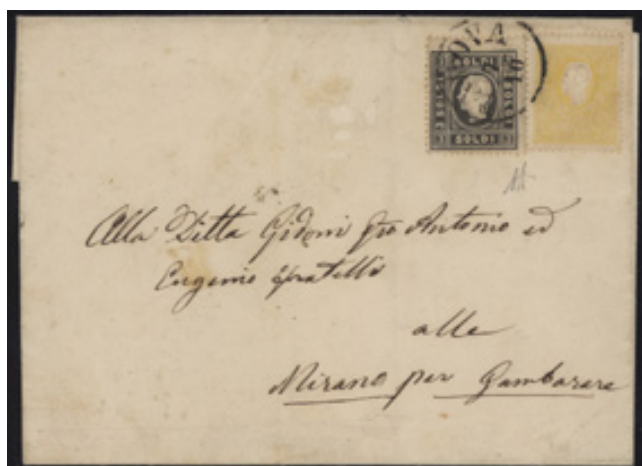 OVA
10
SOLDI
3 SOLDI 3
Alla Ditta Gidoni fro Antonio ed
Eugenio fratelli
alle
Mirano per Gambarare